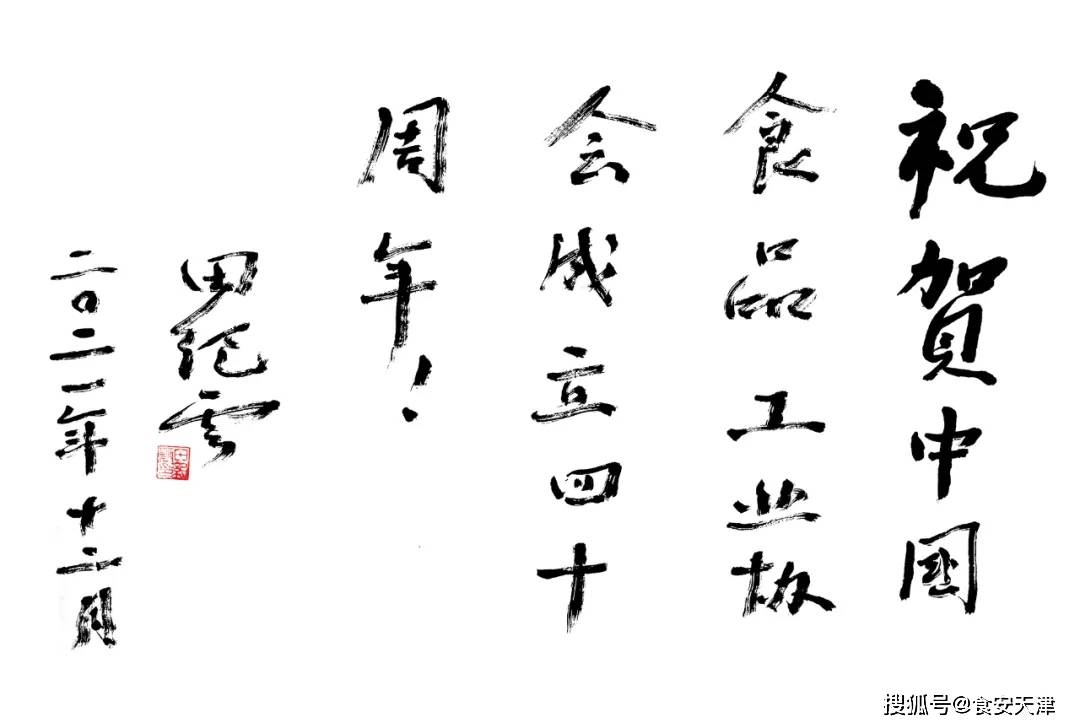 祝贺中國
食品工业协
会成立四十
周年！
田纪云
二〇二一年十二月
搜狐号@食安天津